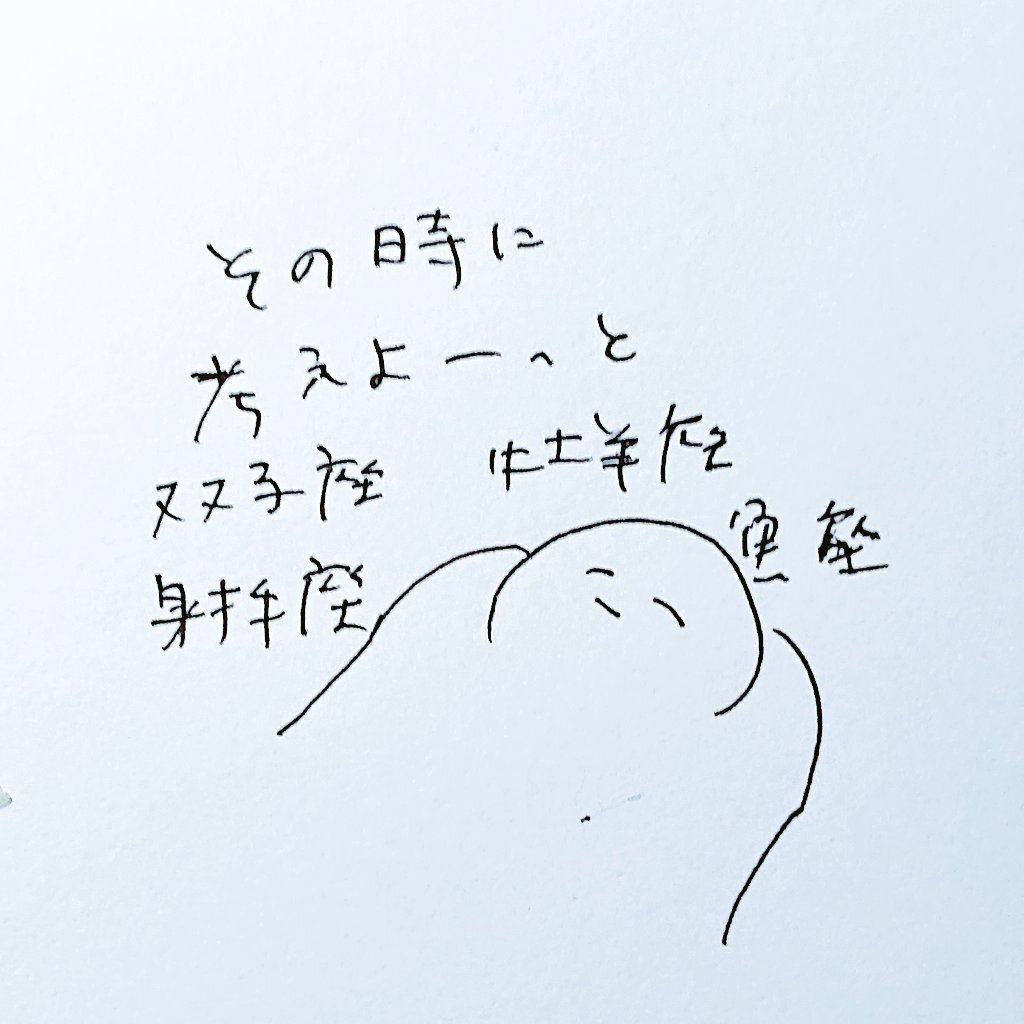 その時に
考えよーっと
双子座 牡羊座
魚座
射手座